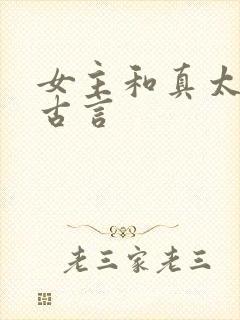 女主和真太
古言
老三家老三